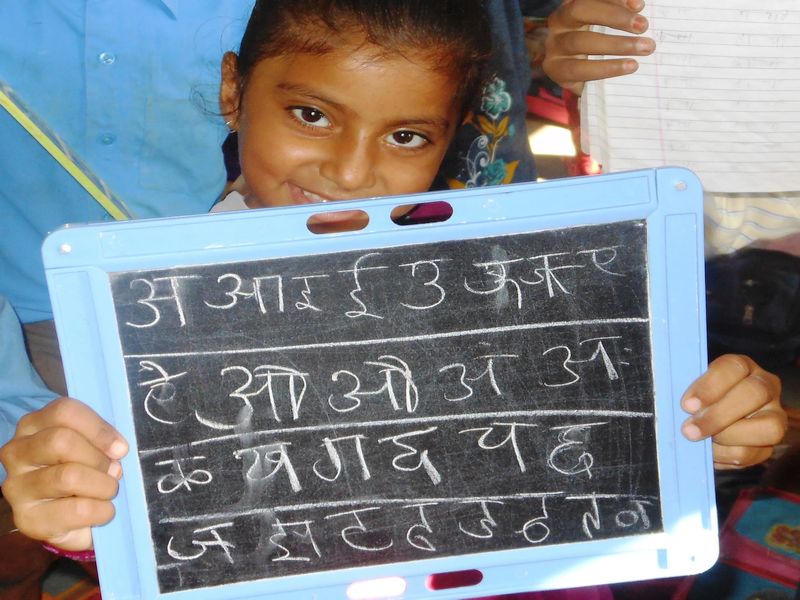 अ आ इ ई उ ऊ ऋ ए
है ओ औ अं अः
क ख ग घ च छ
ज झ ट ठ ड ढ त न